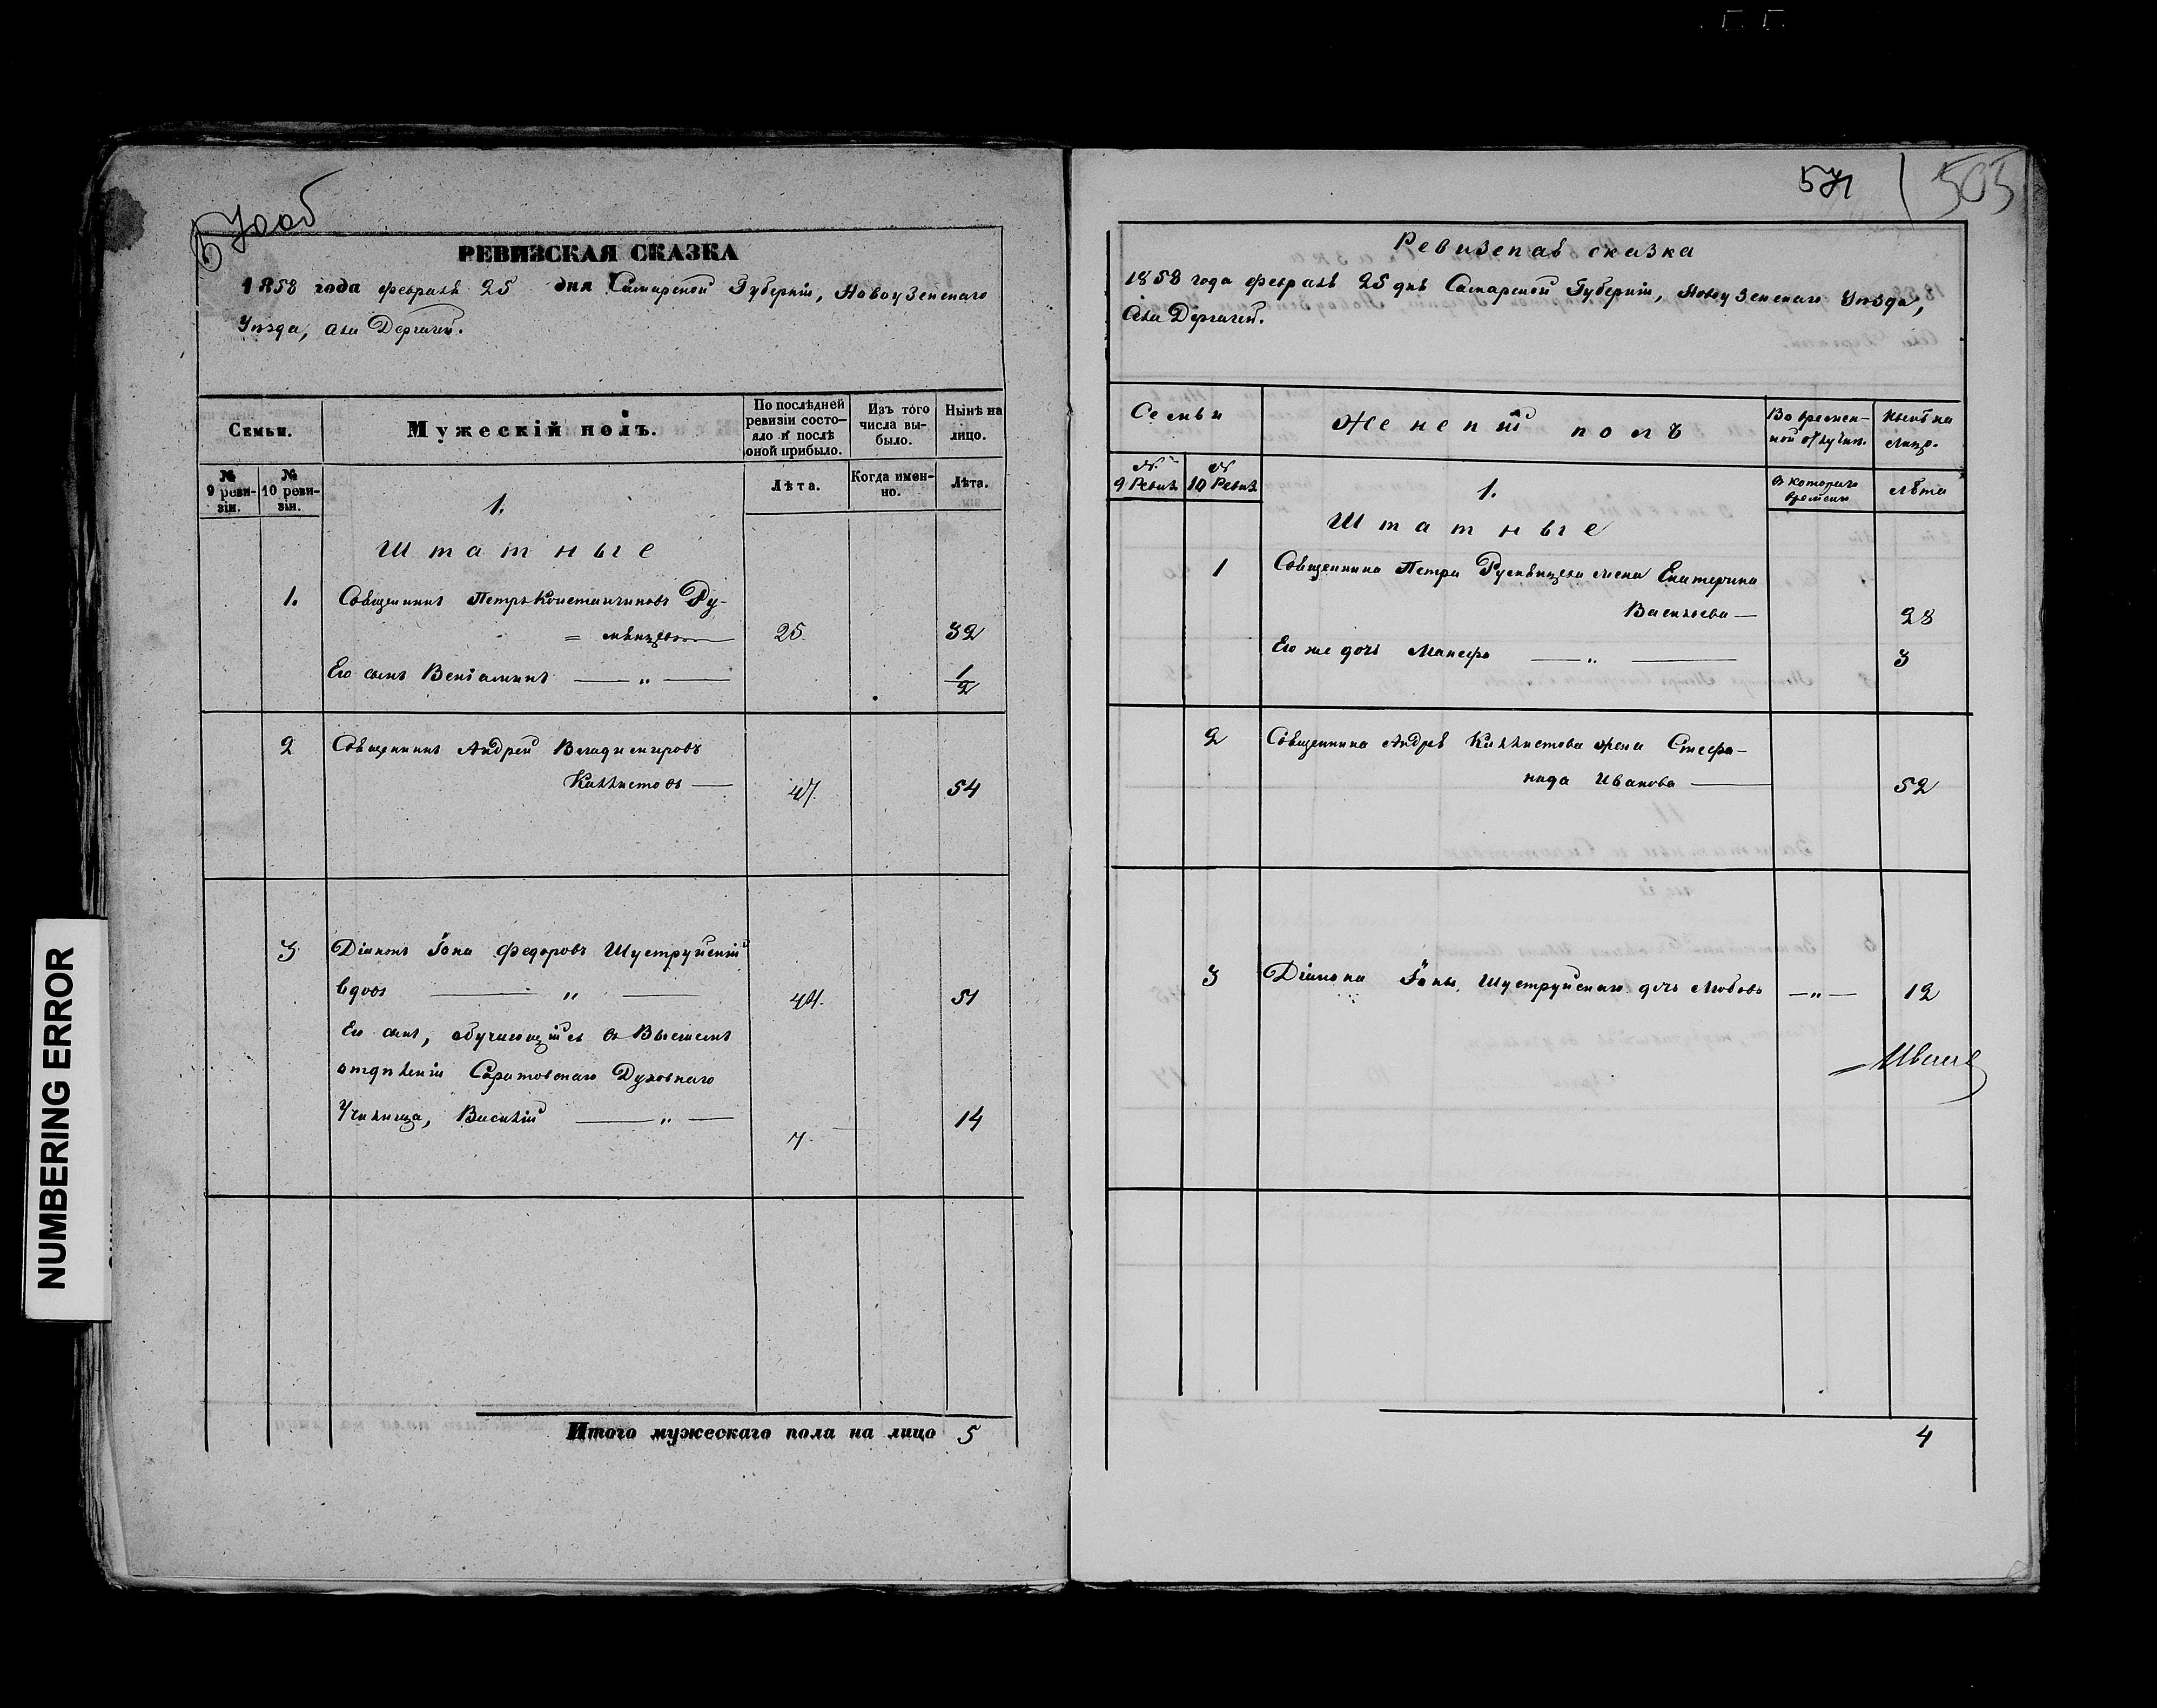 570об
РЕВИЗСКАЯ СКАЗКА
1858 года февраля 25 дня Самарской Губерніи, Новоузенскаго
Уѣзда, села Дергачей.
Семьи.
Мужескій полъ.
По послѣдней
ревизіи состо-
яло и послѣ
оной прибыло.
Изъ того
числа вы-
было.
Нынѣ на
лицо.
№
9 реви-
зіи.
№
10 реви-
зіи.
Лѣта.
Когда имен-
но.
Лѣта.
1.
Штатные
1. Священникъ Петръ Константиновъ Ру-
= 25. 32
Его сынъ Веніаминъ — „ — 1/2
2 Священникъ Андрей Владимировъ
Каллистовъ — 47. 54
3 Діаконъ Іона Федоровъ Шуструйскій
вдовъ — „ — 44. 51
Его сынъ, обучающійся въ Высшемъ
отдѣленіи Саратовскаго Духовнаго
Училища, Василій — „ — 7. 14
Итого мужескаго пола на лицо 5
571
505
Ревизская сказка
1858 года февраля 25 дня Самарской Губерніи, Новоузенскаго Уѣзда,
села Дергачей.
Семьи
Женскій полъ
Во времен-
ной отлучкѣ.
Нынѣ на
лицо.
№
9 Ревиз.
№
10 Ревиз.
съ котораго
времени
лѣта
1.
Штатные
1 Священника Петра жена Екатерина
Васильева — 28
Его же дочь — „ — 3
2 Священника Андрея Каллистова жена Стефа-
нида Иванова — 52
3 Діакона Іоны Шуструйскаго дочь Любовь — „ — 12
4
NUMBERING ERROR